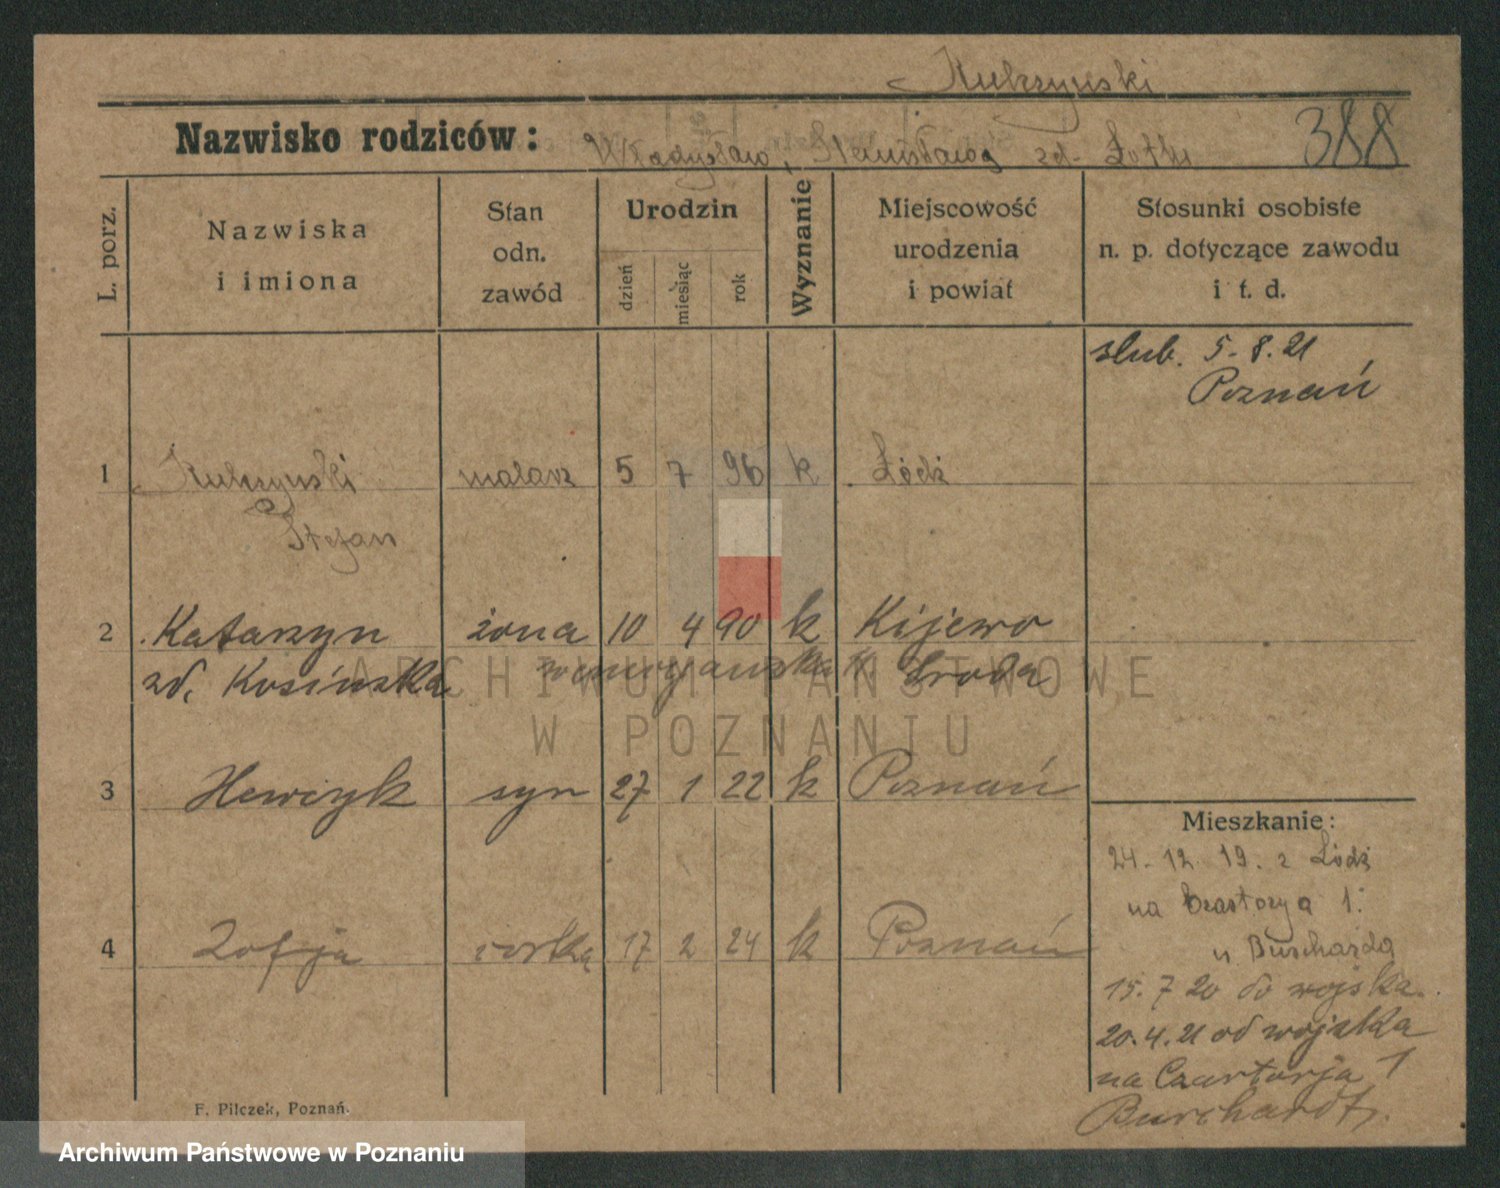 388
Nazwisko rodziców: Władysław, Stanisława zd.
L. porz.
Nazwiska i imiona
Stan odn. zawód
Urodzin
dzień
miesiąc
rok
Wyznanie
Miejscowość urodzenia i powiat
Stosunki osobiste n. p. dotyczące zawodu i t. d.
slub. 5.8.21
Poznań
1 malarz 5 7 96 k Łódź
Stefan
2 Katarzyn żona 10 4 90 k Kijewo
zd. Kosińska Środa
3 Henryk syn 27 1 22 k Poznań
4 Zofja corka 17 2 24 k Poznań
Mieszkanie:
24-12 19. z Łódź
na 1.
u Burcharda
15.7 20 do wojska.
20.4.21 od wojska
na Czartorja 1
Burchardt.
F. Pilczek, Poznań.
ARCHIWUM PAŃSTWOWE
W POZNANIU
Archiwum Państwowe w Poznaniu